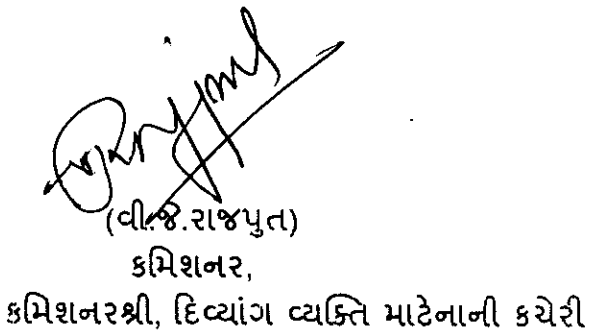 (વી.જે.રાજપુત)
કમિશનર,
કમિશનરશ્રી, દિવ્યાંગ વ્યક્તિ માટેનાની કચેરી